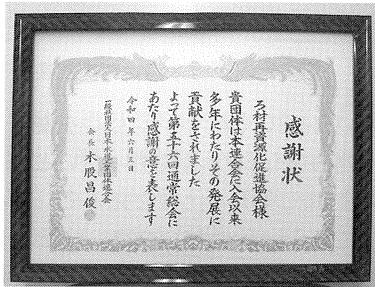 感謝状
ろ材再資源化促進協会様
貴団体は本連合会に入会以来
多年にわたりその発展に
貢献をされました
よって第五十六回通常総会に
あたり感謝の意を表します
令和四年六月三日
一般社団法人日本水道工業団体連合会
会長 木股昌俊